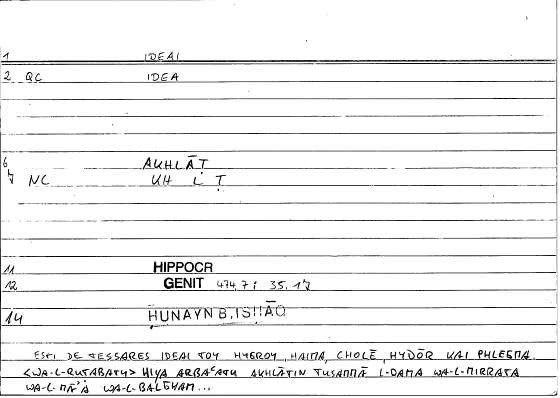 1 IDEAI
2 QC IDEA
6 AKHLĀṬ
7 NC KH L Ṭ
11 HIPPOCR
12 GENIT 474,7; 35.17
14 ḤUNAYN B. ISḤĀQ
ESTI DE TESSARES IDEAI TOY HYGROY, HAIMA, CHOLĒ, HYDŌR KAI PHLEGMA.
<WA-L-RUṬABATU> HIYA ARBAʿATU AKHLĀṬIN TUSAMMĀ L-DAMA WA-L-MIRRATA
WA-L-MĀʾA WA-L-BALGHAM...